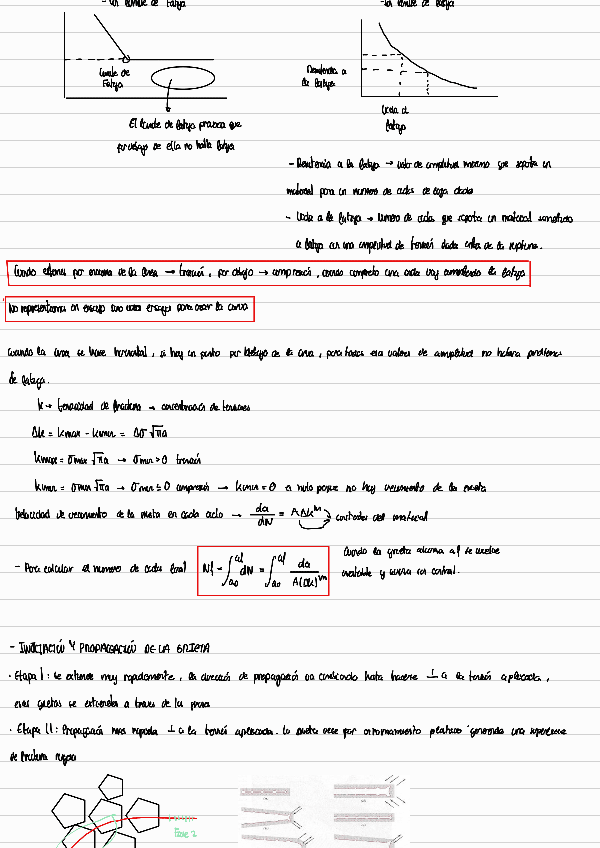 - un límite de Fatiga
- un límite de fatiga
Límite de
Fatiga
Resistencia a
la fatiga
Vida a
fatiga
El límite de fatiga provoca que
por debajo de ella no halla fatiga
- Resistencia a la fatiga → valor de amplitud máximo que soporta un
material para un número de ciclos de carga dado
- Vida a la fatiga → número de ciclos que soporta un material sometido
a fatiga con una amplitud de tensión dada antes de la ruptura.
Cuando estamos por encima de la línea → tracción, por debajo → compresión, cuando completo una onda voy aumentando la fatiga
No representamos un ensayo sino varios ensayos para crear la curva
cuando la curva se hace horizontal, si hay un punto por debajo de la curva, para todos esos valores de amplitud no habrá problema
de fatiga.
K → tenacidad de fractura → concentración de tensiones
ΔK = Kmax - Kmin = Δσ √πa
Kmax = σmax √πa → σmin > 0 tracción
Kmin = σmin √πa → σmin ≤ 0 compresión → Kmin = 0 o nulo porque no hay crecimiento de la grieta
Velocidad de crecimiento de la grieta en cada ciclo → da/dN = AΔK^m constantes del material
- Para calcular el número de ciclos final Nf = ∫ao^af dN = ∫ao^af da/A(ΔK)^m
Cuando la grieta alcanza af se vuelve
inestable y crece sin control.
- INICIACIÓN Y PROPAGACIÓN DE LA GRIETA
· Etapa I: se extiende muy rápidamente, la dirección de propagación va cambiando hasta hacerse ⊥ a la tensión aplicada,
esas grietas se extienden a través de los granos
· Etapa II: Propagación más rápida ⊥ a la tensión aplicada. La grieta crece por enromamiento plástico generando una superficie
de fractura rugosa
Fase 2